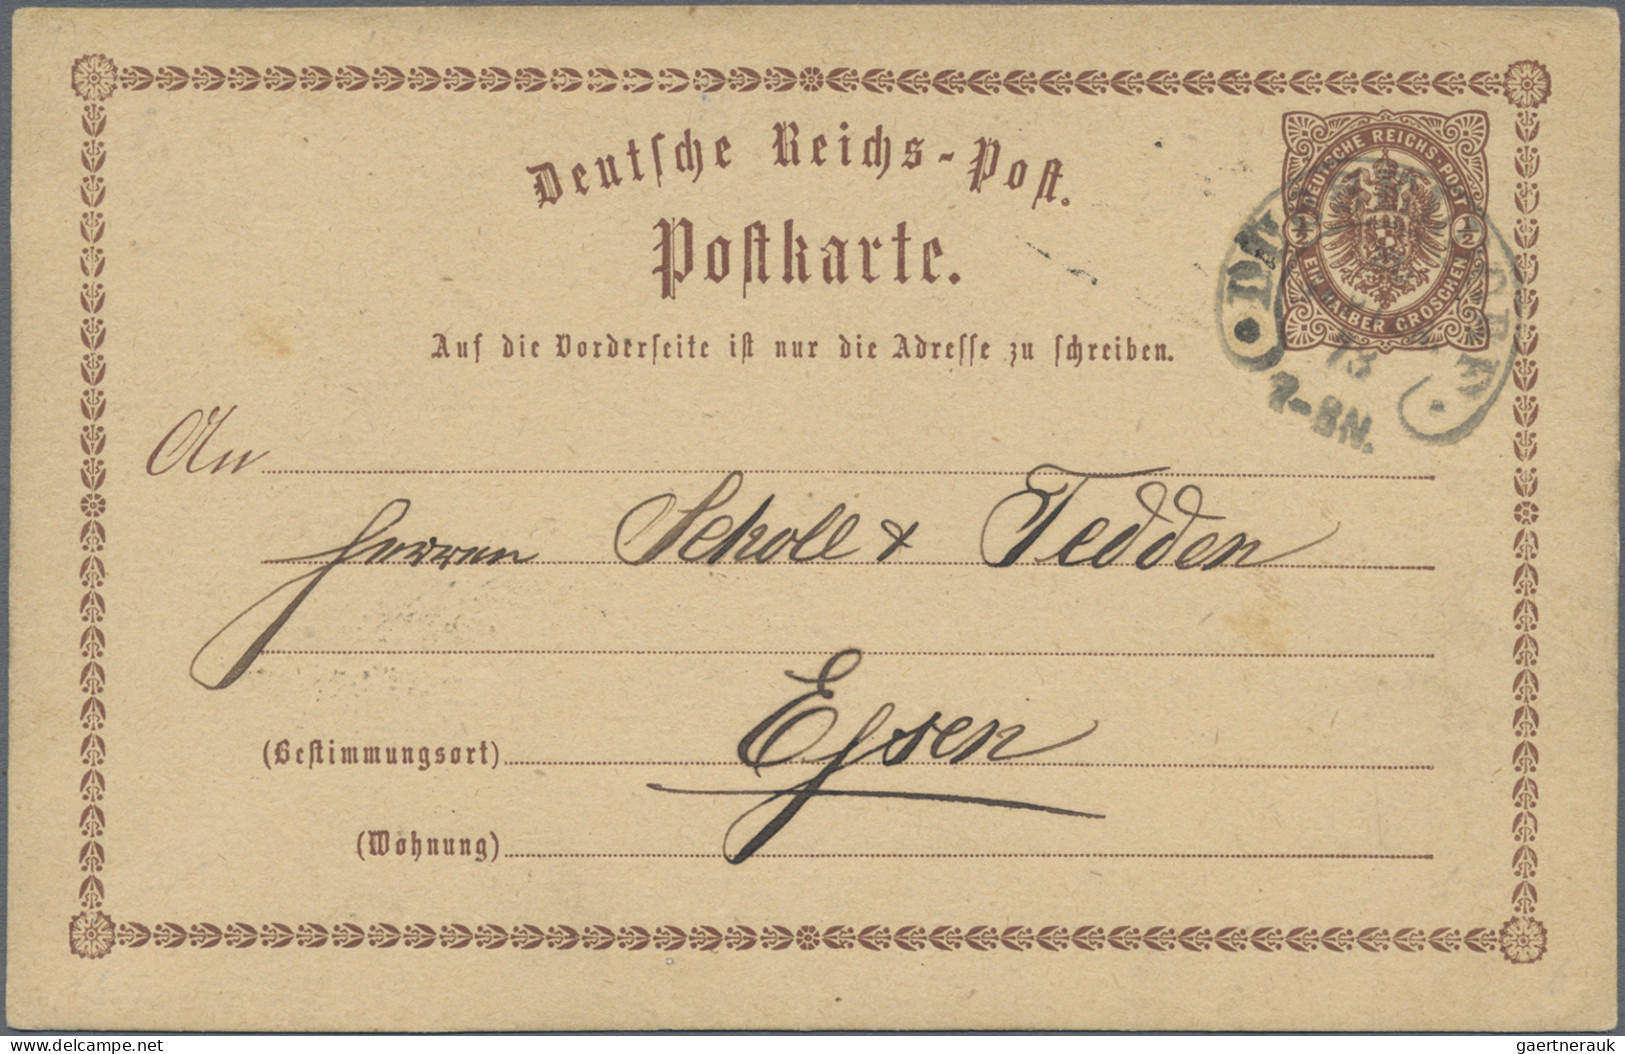 Deutsche Reichs-Post.
Postkarte.
Auf die Vorderseite ist nur die Adresse zu schreiben.
DEUTSCHE REICHS-POST
½ ½
EIN HALBER GROSCHEN
73
7-8N.
An
Herren Scholl & Tedden
Essen
(Bestimmungsort)
(Wohnung)
delcampe.net
gaertnerauk